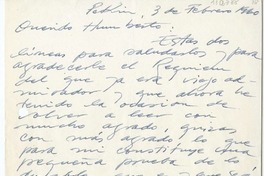 Pekín, 3 de Febrero 1960
Querido Humberto:
Estas dos
líneas para saludarlos y para
agradecerle el Requiem
del que ya era viejo ad-
mirador y que ahora he
tenido la ocasión de
volver a leer con
mucho agrado, quizás
con más agrado, lo que
para mí constituye una
pequeña prueba de lo